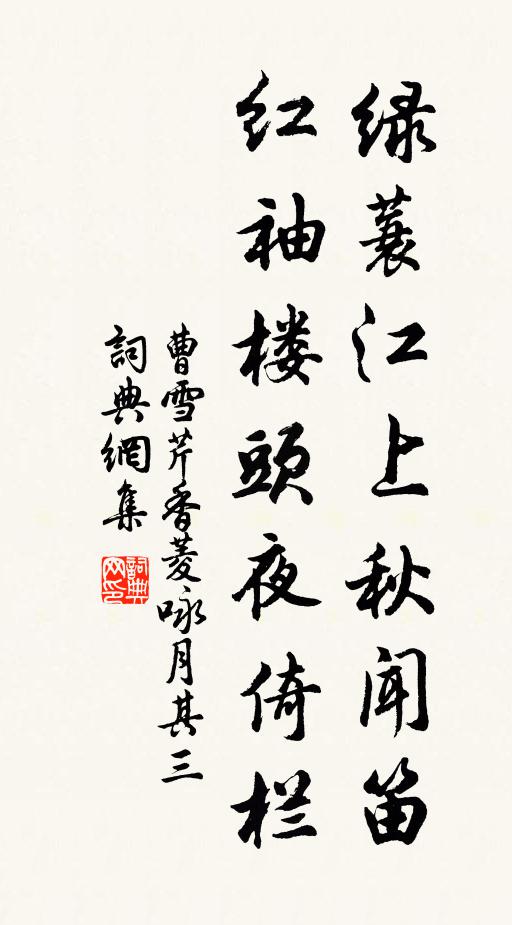 绿蓑江上秋闻笛
红袖楼頭夜倚栏
曹雪芹香菱咏月其三
詞典網集
詞典网印